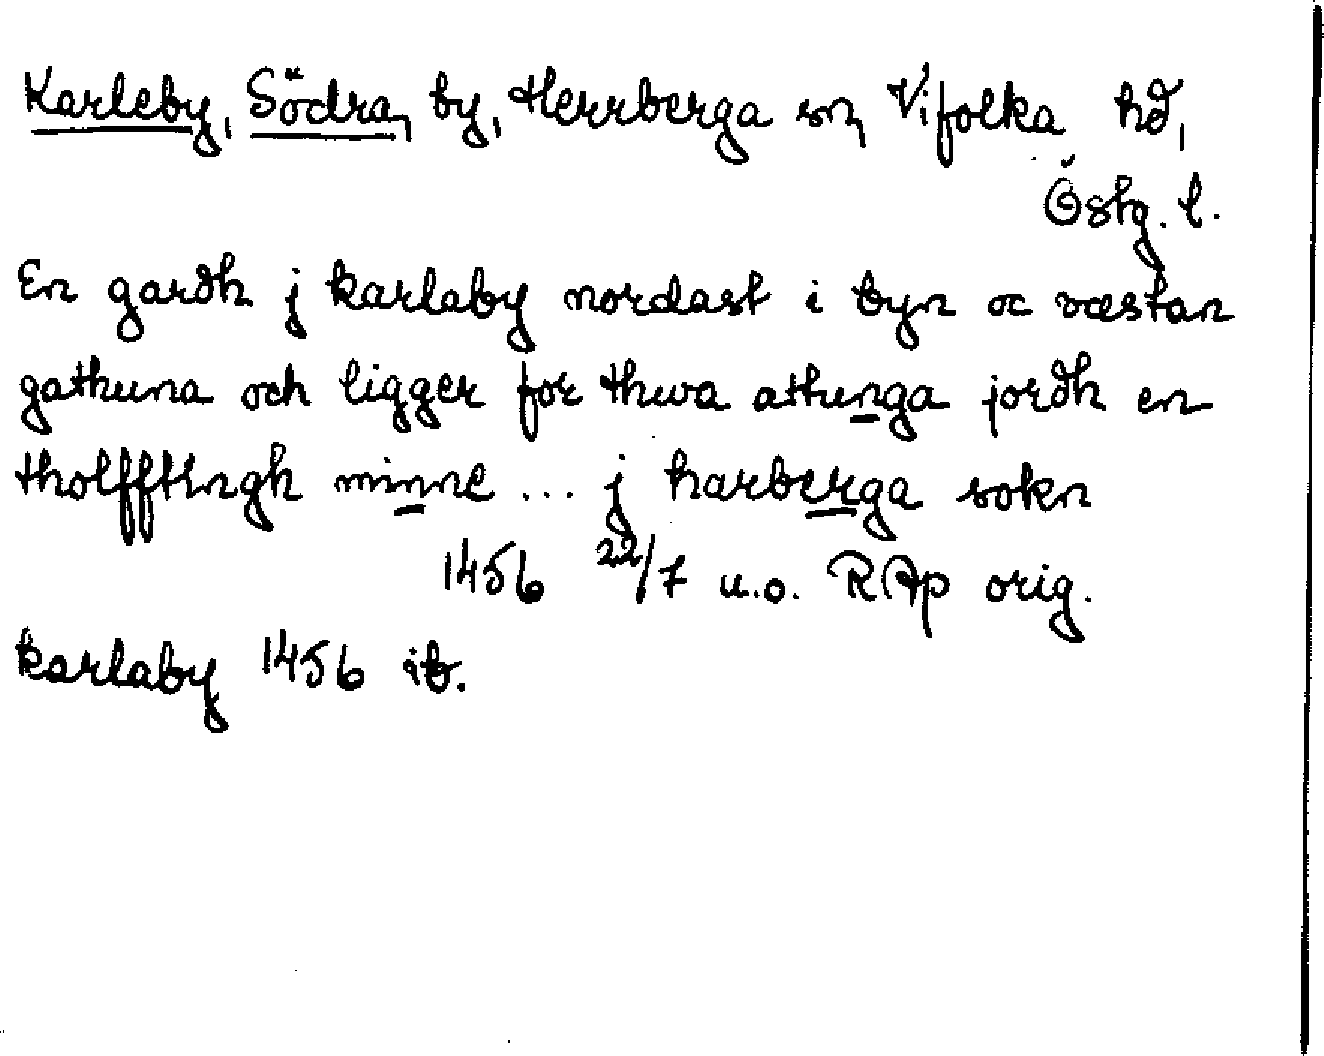 Karleby, Södra, by, Herrberga sn, Vifolka hd,
Östg. l.
En garðh j karlaby nordast i byn oc væstan
gathuna och ligger for thwa athunga jorðh en
tholfftingh minne ... j harberga sokn
1456 22/7 u.o. RAp orig.
karlaby 1456 ib.